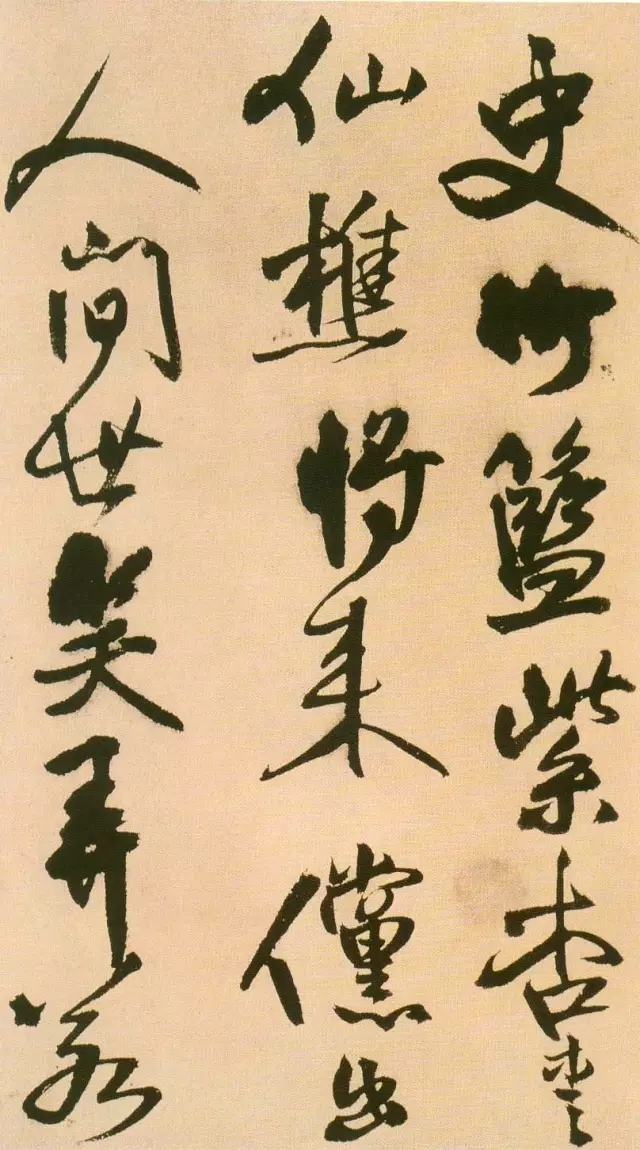 史竹籃紫杏
仙樵將來儻出
人間世笑弄